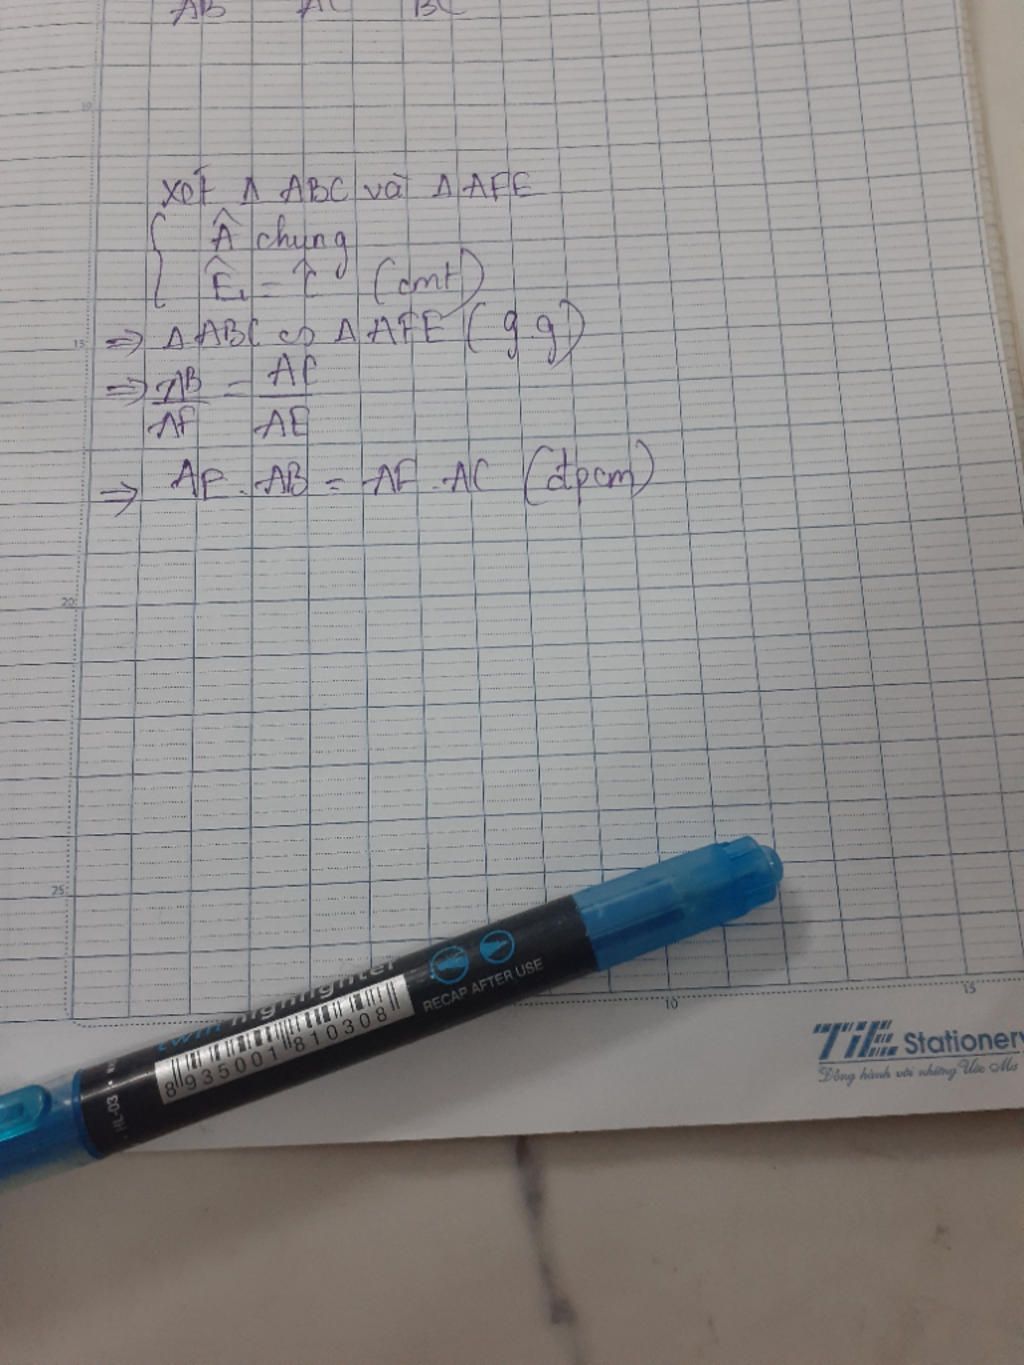 AB AC BC
10
xét Δ ABC và Δ AFE
Â chung
Ê₁ = Ĉ (cmt)
15
⇒ Δ ABC ∽ Δ AFE (g.g)
⇒ AB/AF = AC/AE
⇒ AE . AB = AF . AC (đpcm)
20
25
twin highlighter
RECAP AFTER USE
8 935001 810308
HL-03
10
15
TiE Stationery
Đồng hành với những Ước Mơ